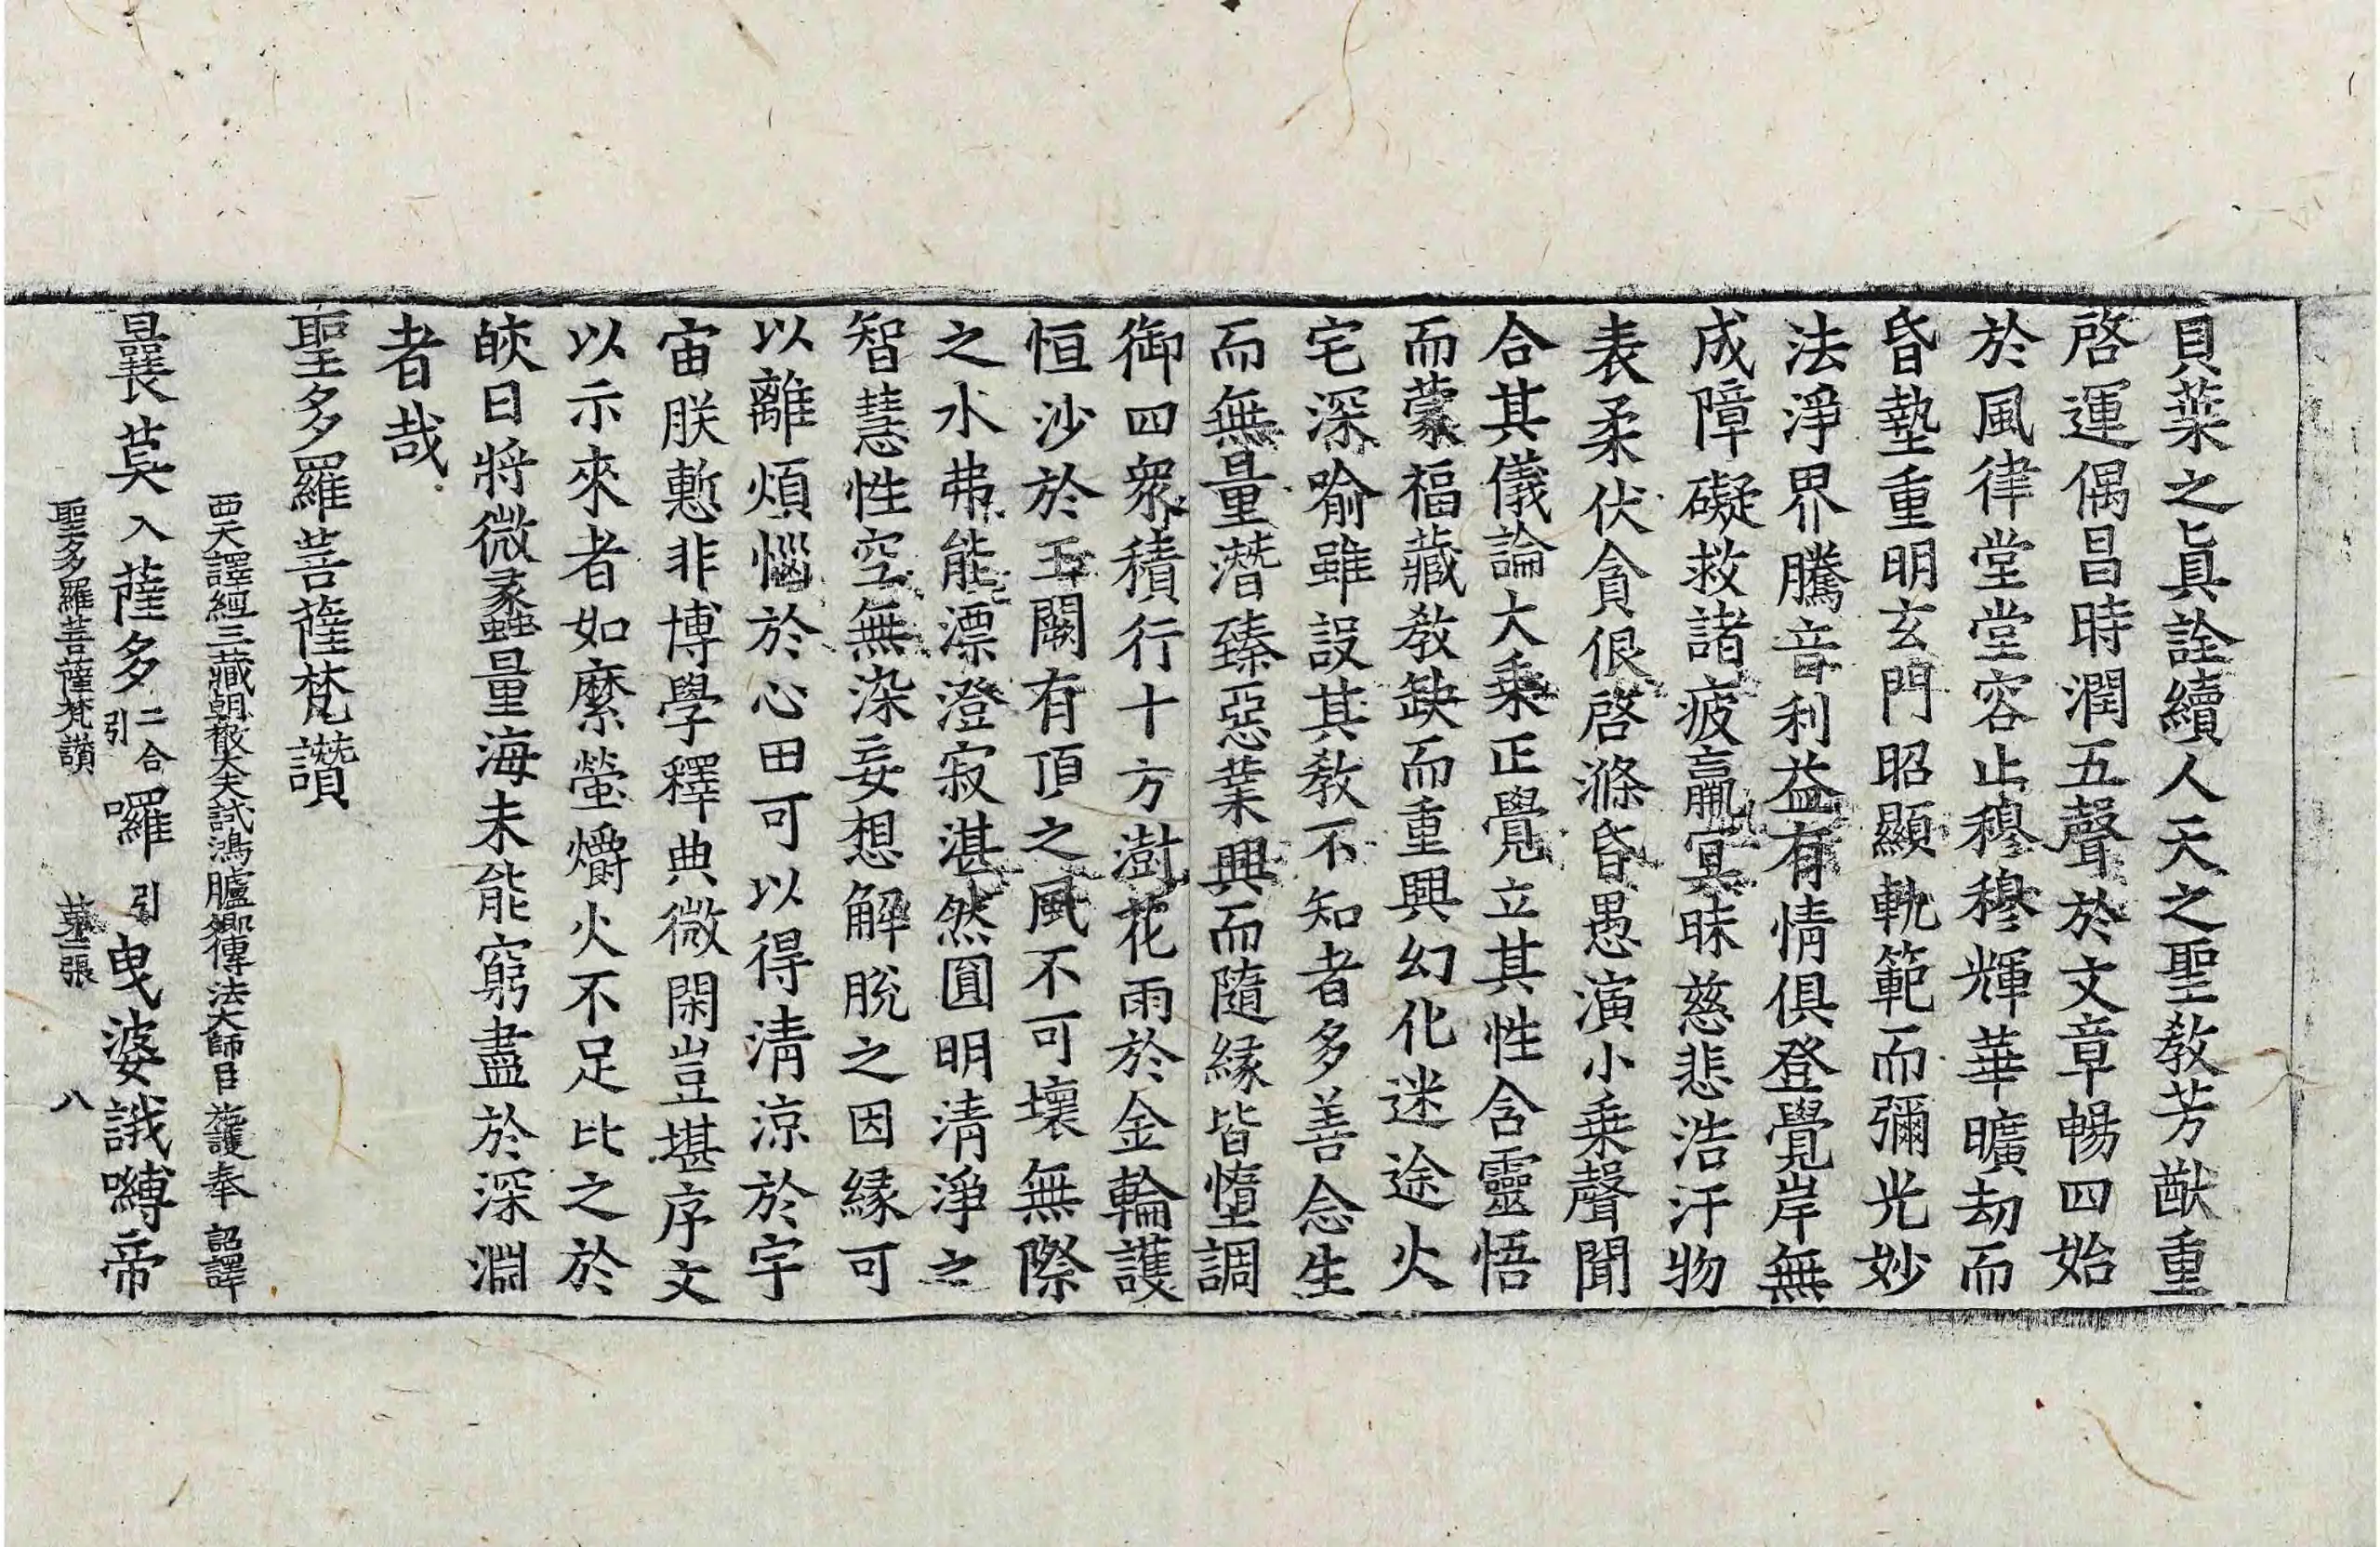 貝葉之眞詮續人天之聖敎芳猷重
啓運偶昌時潤五聲於文章暢四始
於風律堂堂容止穆穆輝華曠劫而
昏墊重明玄門昭顯軌範而彌光妙
法淨界騰音利益有情俱登覺岸無
成障礙救諸疲羸冥昧慈悲浩汗物
表柔伏貪佷啓滌昏愚演小乗聲聞
合其儀論大乗正覺立其性含靈悟
而蒙福藏敎缺而重興幻化迷途火
宅深喻雖設其敎不知者多善念生
而無量潛臻惡業興而隨緣皆墮調
御四衆積行十方澍花雨於金輪護
恒沙於玉闕有頂之風不可壞無際
之水弗能漂澄寂湛然圓明清淨之
智慧性空無染妄想解脫之因緣可
以離煩惱於心田可以得清涼於宇
宙朕慙非博學釋典微閑豈堪序文
以示來者如縻螢爝火不足比之於
皎日將微蠡量海未能窮盡於深淵
者哉
聖多羅菩薩梵讃
西天譯經三藏朝散大夫試鴻臚卿傳法大師臣施護奉 詔譯
曩莫入薩多二合引囉引曳婆誐嚩帝
聖多羅菩薩梵讃 第二張 八